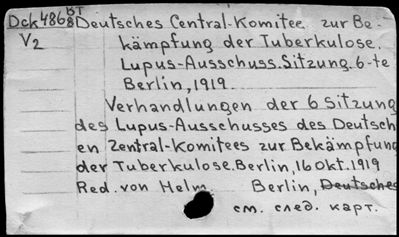 Dck4868 BT Deutsches Central-Komitee zur Be-
V2 kämpfung der Tuberkulose.
Lupus-Ausschuss. Sitzung. 6-te
Berlin, 1919.
Verhandlungen der 6 Sitzung
des Lupus-Ausschusses des Deutsch
en Zentral-Komitees zur Bekämpfung
der Tuberkulose. Berlin, 16 Okt. 1919
Red. von Helm Berlin, Deutsches
см. след. карт.